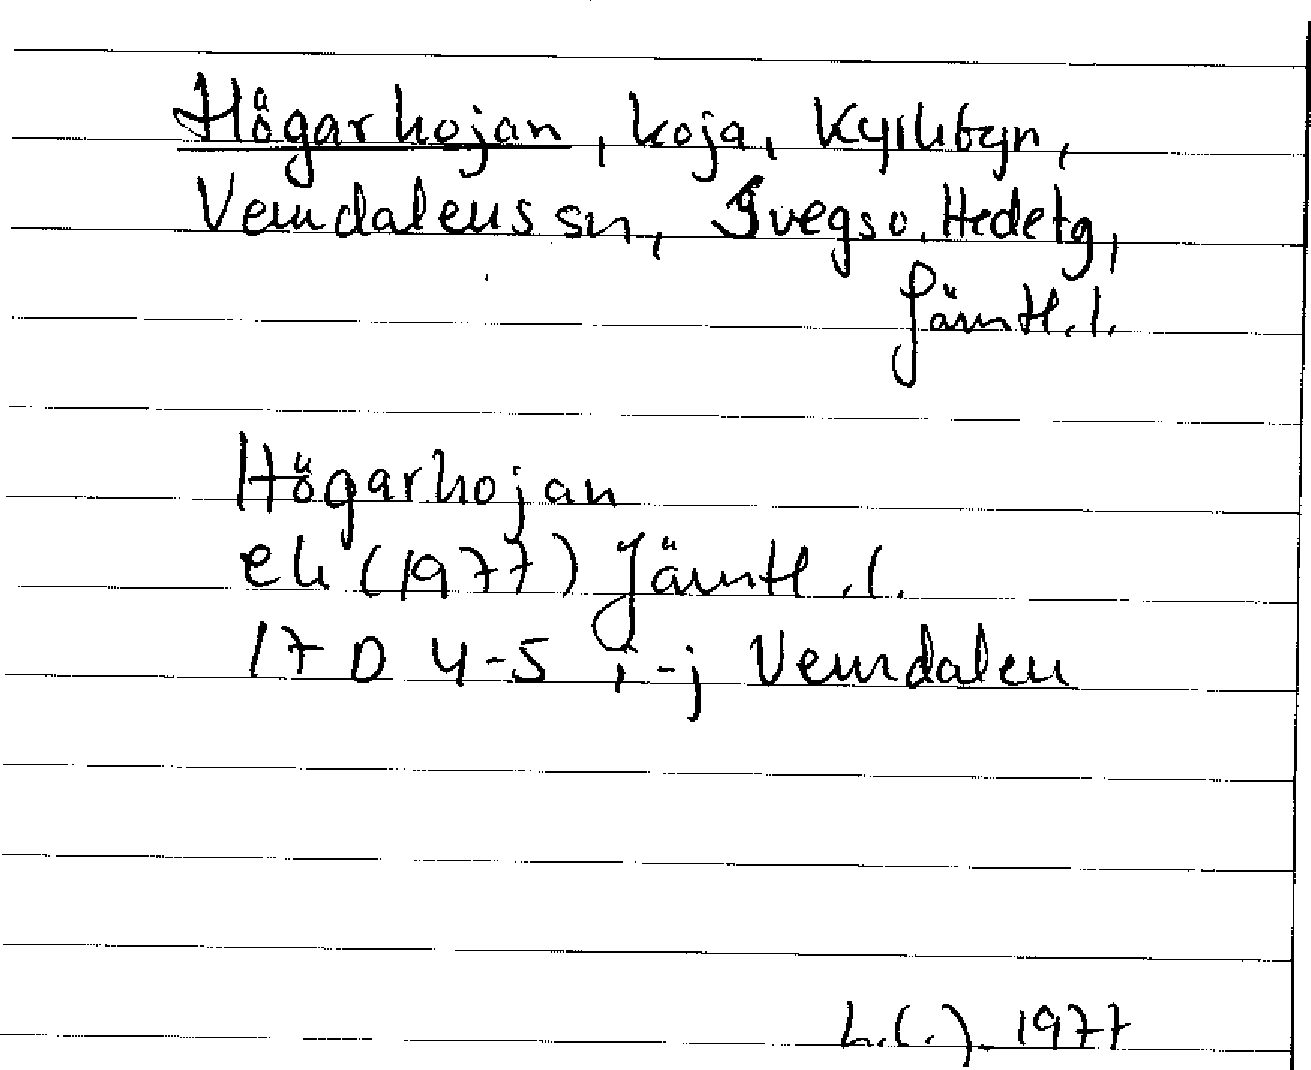 Högarkojan, koja, Kyrkbyn,
Vemdalens sn, Svegs o. Hedetg,
Jämtl. l.
Högarkojan
ek (1977) Jämtl. l.
17 D 4-5 i-j Vemdalen
1977